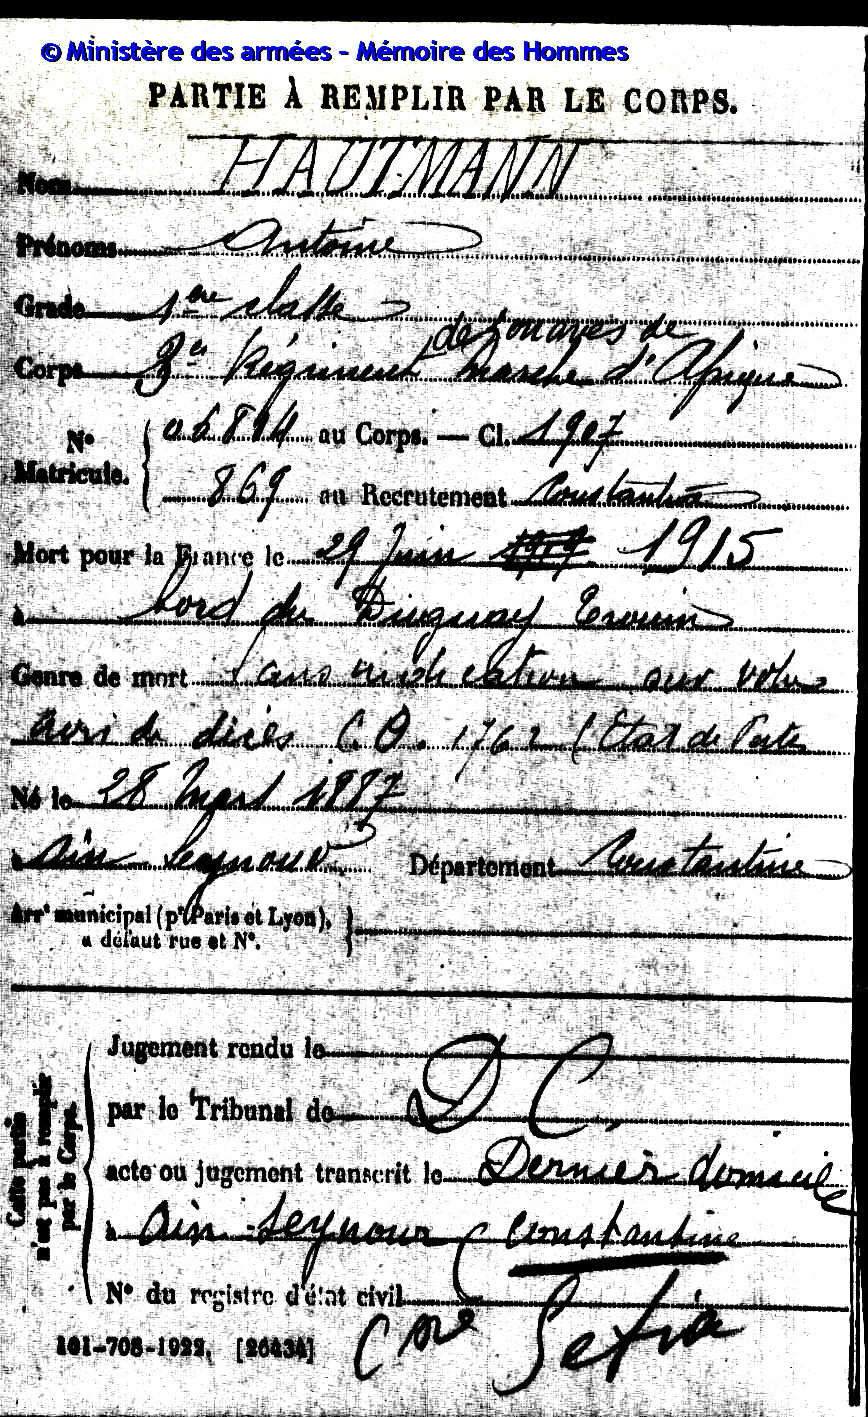 © Ministère des armées - Mémoire des Hommes
PARTIE À REMPLIR PAR LE CORPS.
Nom HAUTMANN
Prénoms Antoine
Grade 1ère classe
de zouaves de
Corps 3e Régiment marche d'Afrique
N° Matricule. au Corps. — Cl. 1907
869 au Recrutement Constantine
Mort pour la France le 29 Juin 1915
à bord du Duguay Trouin
Genre de mort sans indication sur
avis de décès C.O. 1762 (Etat de Pertes
Né le 28 Mars 1887
à Ain Seynour Département Constantine
Arrt municipal (pr Paris et Lyon),
à défaut rue et N°.
Cette partie
n'est pas à remplir
par le Corps.
Jugement rendu le
par le Tribunal de D C.
acte ou jugement transcrit le Dernier domicile
à Ain Seynour (Constantine
N° du registre d'état civil
101-708-1922. [26434]